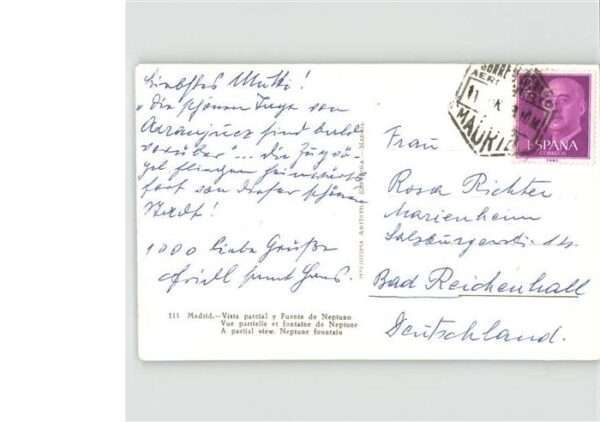 Liebstes Mutti!
"Die schönen Tage von
Aranjuez sind bald
vorüber"... die Zugvö-
gel fliegen heimwärts
fort von dieser schönen
Stadt!
1000 liebe Grüße
Friedl samt Hans.
111 Madrid.—Vista parcial y Fuente de Neptuno
Vue partielle et fontaine de Neptune
A partial view. Neptune fountain
CORREO
AEREO
MADRID
ESPAÑA
CORREOS
Frau
Rosa Richter
Marienheim
Bad Reichenhall
Deutschland.